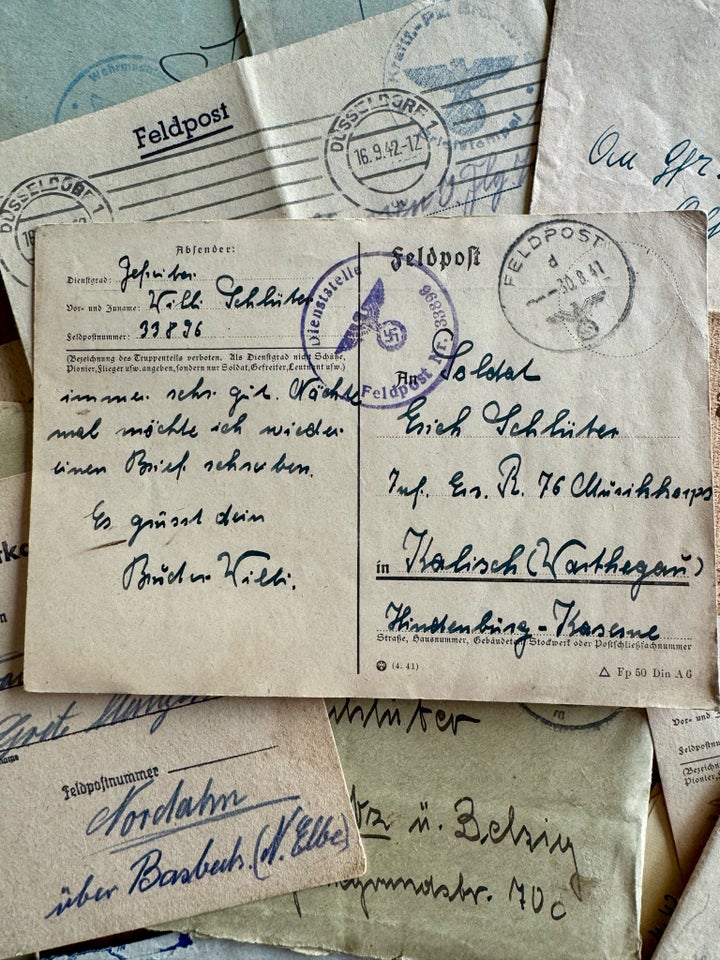 Wehrmacht
Feldpost
DÜSSELDORF 1
16.9.42-12
DÜSSELDORF 1
Briefstempel
An
Absender:
Dienstgrad: Gefreiter
Vor- und Zuname: Willi Schlüter
Feldpostnummer: 33896
(Bezeichnung des Truppenteils verboten. Als Dienstgrad nicht Schütze,
Pionier, Flieger usw. angeben, sondern nur Soldat, Gefreiter, Leutnant usw.)
immer sehr gut. Nächste
mal möchte ich wieder
einen Brief schreiben.
Es grüsst dein
Bruder Willi.
Dienststelle
Feldpost Nr. 33896
Feldpost
FELDPOST
d
30.8.41
An Soldat
Erich Schlüter
Inf. Ers. R. 76 Musikkorps
in Kalisch (Warthegau)
Hindenburg-Kaserne
Straße, Hausnummer, Gebäudeteil, Stockwerk oder Postschließfachnummer
(4. 41)
Fp 50 Din A 6
Feldpostnummer
Nordahn
über Basbeck. (N. Elbe)
Schlüter
ü. Belzig
70c
Vor- und
Feldpostn
(Bezeichn
Pionier,